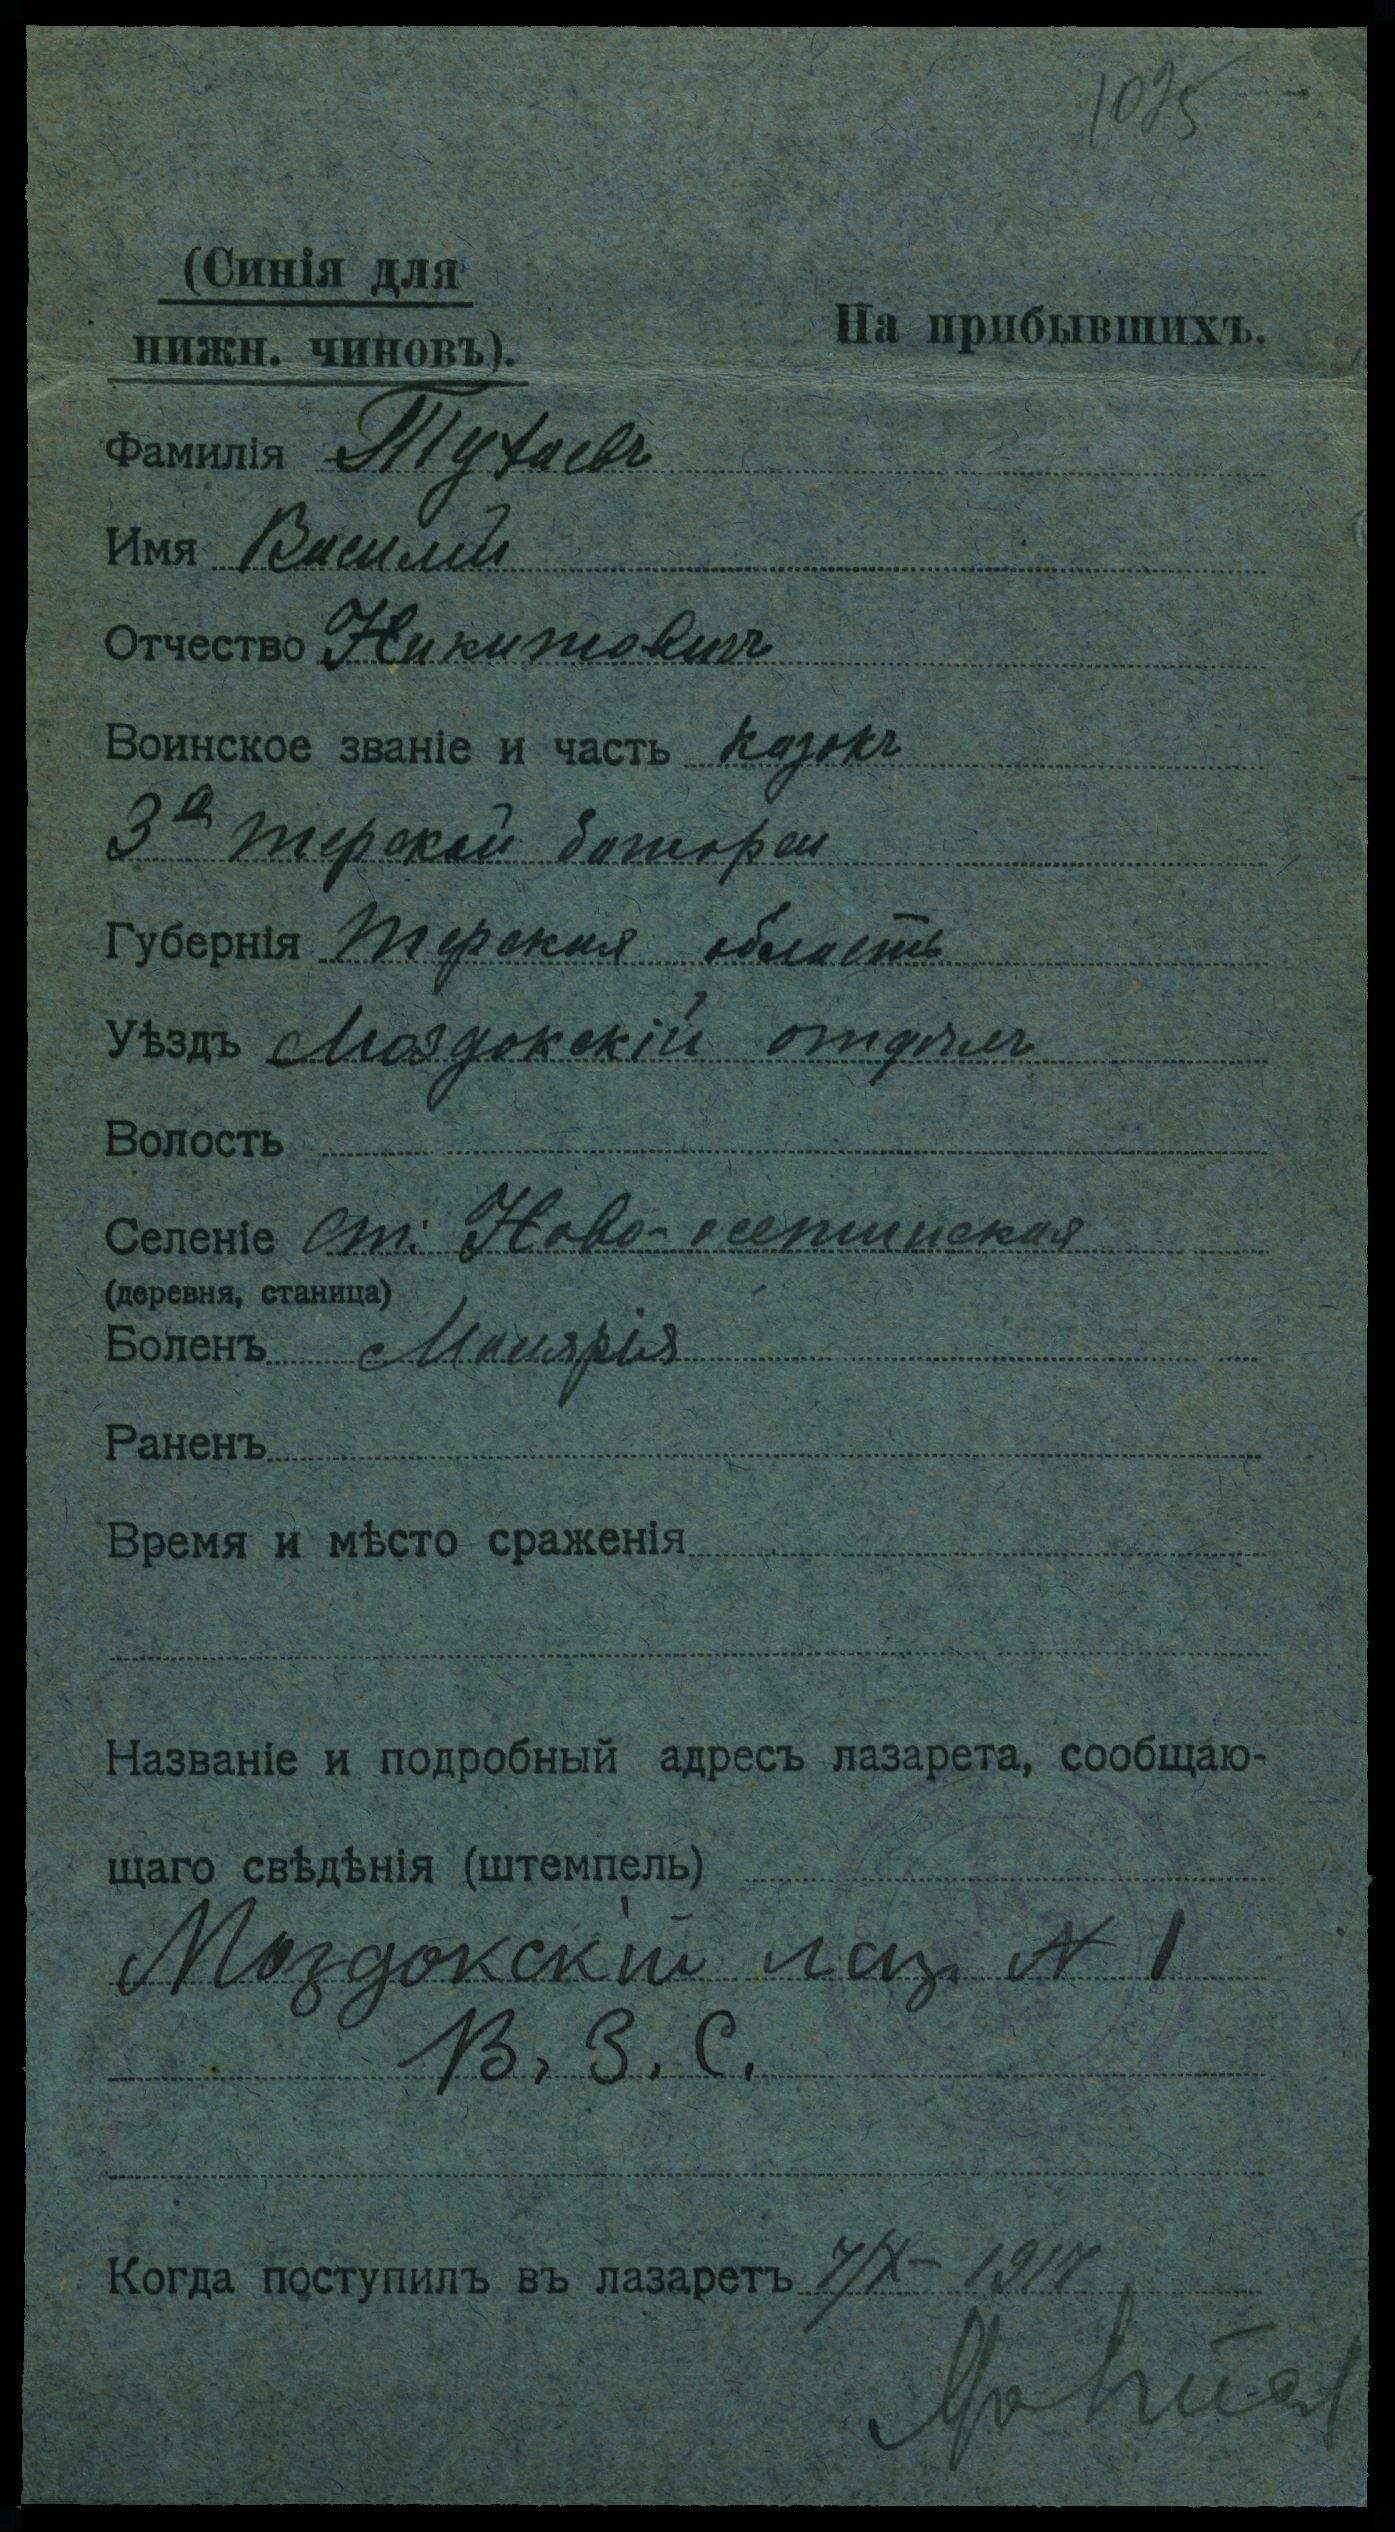 1025
(Синія для
нижн. чиновъ).
На прибывшихъ.
Фамилія Тухаевъ
Имя Василій
Отчество Никитовичъ
Воинское званіе и часть казакъ
3й Терской батареи
Губернія Терская область
Уѣздъ Моздокскій отдѣлъ
Волость
Селеніе Ст. Ново-осетинская
(деревня, станица)
Боленъ Молярія
Раненъ
Время и мѣсто сраженія
Названіе и подробный адресъ лазарета, сообщаю-
щаго свѣдѣнія (штемпель)
Моздокскій лаз. № 1
В. З. С.
Когда поступилъ въ лазаретъ 7/X - 1917